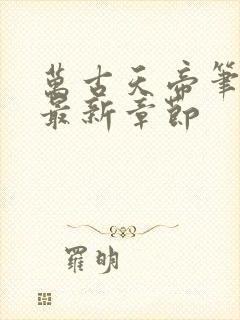 萬古天帝筆
最新章節
羅明